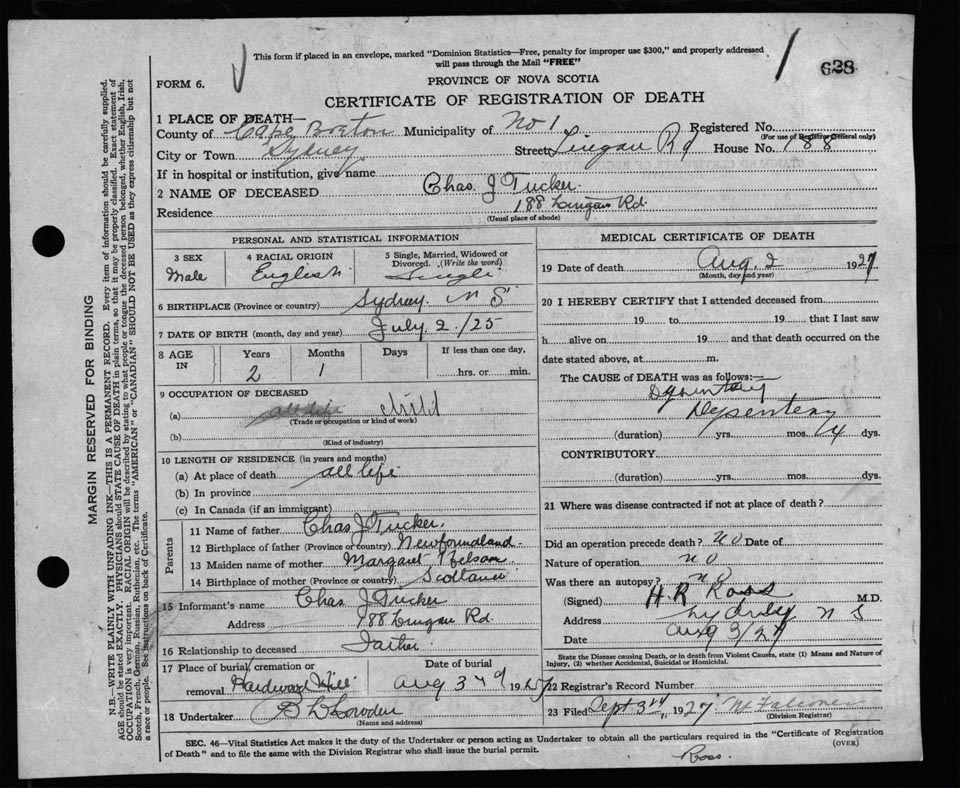 This form if placed in an envelope, marked "Dominion Statistics—Free, penalty for improper use $300," and properly addressed
will pass through the Mail "FREE"
628
FORM 6.
PROVINCE OF NOVA SCOTIA
CERTIFICATE OF REGISTRATION OF DEATH
1 PLACE OF DEATH—
County of Cape Breton Municipality of No 1 Registered No.
(For use of Registrar General only)
City or Town Sydney Street Lingan Rd House No. 188
If in hospital or institution, give name
2 NAME OF DECEASED Chas. J Tucker.
Residence 188 Lingan Rd.
(Usual place of abode)
PERSONAL AND STATISTICAL INFORMATION
3 SEX 4 RACIAL ORIGIN 5 Single, Married, Widowed or Divorced. (Write the word)
Male English Single
6 BIRTHPLACE (Province or country) Sydney. N S
7 DATE OF BIRTH (month, day and year) July 2./25
8 AGE IN Years Months Days If less than one day,
2 1 hrs. or min.
9 OCCUPATION OF DECEASED
(a) all life child
(Trade or occupation or kind of work)
(b)
(Kind of industry)
10 LENGTH OF RESIDENCE (in years and months)
(a) At place of death all life
(b) In province
(c) In Canada (if an immigrant)
Parents
11 Name of father Chas J Tucker.
12 Birthplace of father (Province or country) Newfoundland.
13 Maiden name of mother Margaret
14 Birthplace of mother (Province or country) Scotland
15 Informant's name Chas J Tucker
Address 188 Lingan Rd.
16 Relationship to deceased Father
17 Place of burial, cremation or removal Hardwood Hill Date of burial Aug 3rd 1927
18 Undertaker
(Name and address)
MEDICAL CERTIFICATE OF DEATH
19 Date of death Aug 2 1927
(Month, day and year)
20 I HEREBY CERTIFY that I attended deceased from
19 to 19 that I last saw
h alive on 19 and that death occurred on the
date stated above, at m.
The CAUSE of DEATH was as follows:—
Dysentery
Dysentery
(duration) yrs. mos. 4 dys.
CONTRIBUTORY
(duration) yrs. mos. dys.
21 Where was disease contracted if not at place of death?
Did an operation precede death? no Date of
Nature of operation no
Was there an autopsy? no
(Signed) H. R Ross M.D.
Address Sydney N S
Date Aug 3/27
State the Disease causing Death, or in death from Violent Causes, state (1) Means and Nature of
Injury, (2) whether Accidental, Suicidal or Homicidal.
22 Registrar's Record Number
23 Filed Sept 3rd, 1927
(Division Registrar)
SEC. 46—Vital Statistics Act makes it the duty of the Undertaker or person acting as Undertaker to obtain all the particulars required in the "Certificate of Registration
of Death" and to file the same with the Division Registrar who shall issue the burial permit. (OVER)
Ross.
MARGIN RESERVED FOR BINDING
N.B.—WRITE PLAINLY WITH UNFADING INK—THIS IS A PERMANENT RECORD. Every item of information should be carefully supplied.
AGE should be stated EXACTLY. PHYSICIANS should STATE CAUSE OF DEATH in plain terms, so that it may be properly classified. Exact statement of
OCCUPATION is very important. RACIAL ORIGIN will be described by stating to what people or tongue the deceased person belonged, whether English, Irish,
Scotch, French, German, Russian, Ruthenian, etc. The terms "AMERICAN" or "CANADIAN" SHOULD NOT BE USED as they express citizenship but not
a race or people. See instructions on back of Certificate.